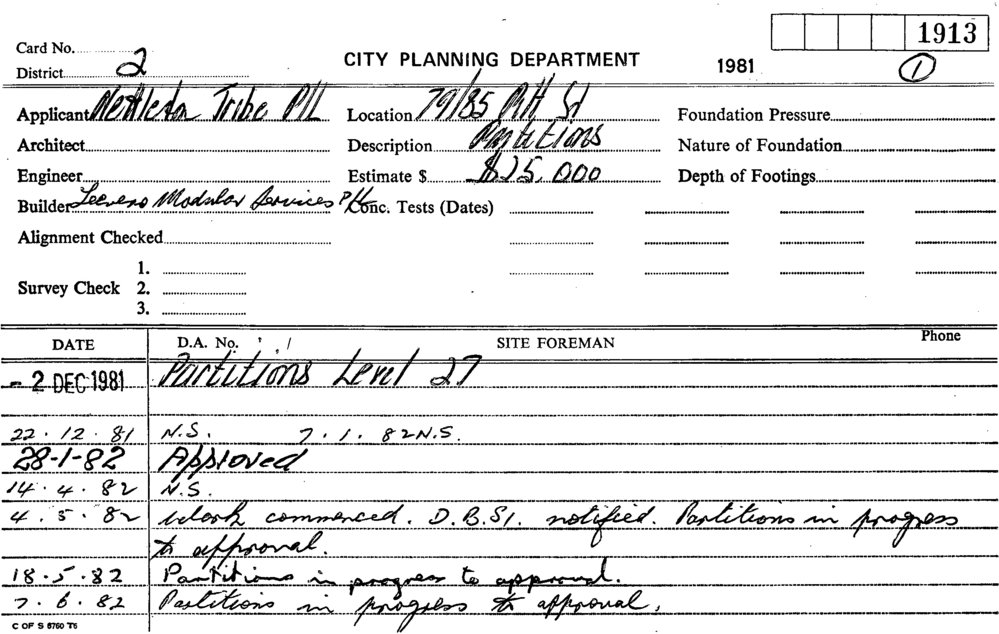 1913
Card No.
CITY PLANNING DEPARTMENT 1981 1
District 2
Applicant Nettleton Tribe P/L Location 79/85 Pitt St Foundation Pressure
Architect Description Partitions Nature of Foundation
Engineer Estimate $ $25,000 Depth of Footings
Builder Modular Services P/L Conc. Tests (Dates)
Alignment Checked
1.
Survey Check 2.
3.
DATE D.A. No. SITE FOREMAN Phone
- 2 DEC 1981 Partitions Level 27
22.12.81 N.S. 7.1.82 N.S.
28-1-82 Approved
14.4.82 N.S.
4.5.82 Work commenced. D.B.S1. notified. Partitions in progress
to approval.
18.5.82 Partitions in progress to approval.
7.6.82 Partitions in progress to approval.
C OF S 6760 T6